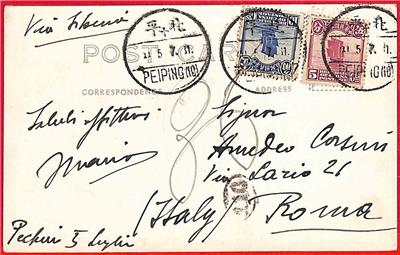 Via Siberia
POST CARD
平 北
11 5 7. 11.
PEIPING (10)
11 5 7. 11.
PEIPING (10)
CORRESPONDENCE
ADDRESS
Saluti affettuosi
Mario
Signor
Amedeo Corsini
Via Lazio 26
(Italy) Roma
Pechino 5 Luglio